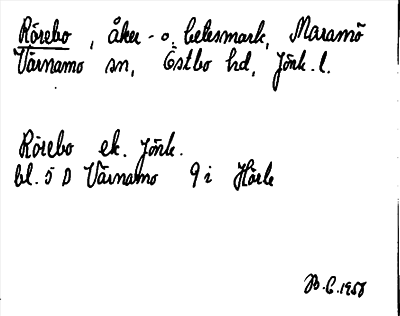 Rörebo, åker- o. betesmark, Maramö
Värnamo sn, Östbo hd, Jönk. l.
Rörebo ek. Jönk.
bl. 5 D Värnamo 9 i Hörle
B.C. 1958